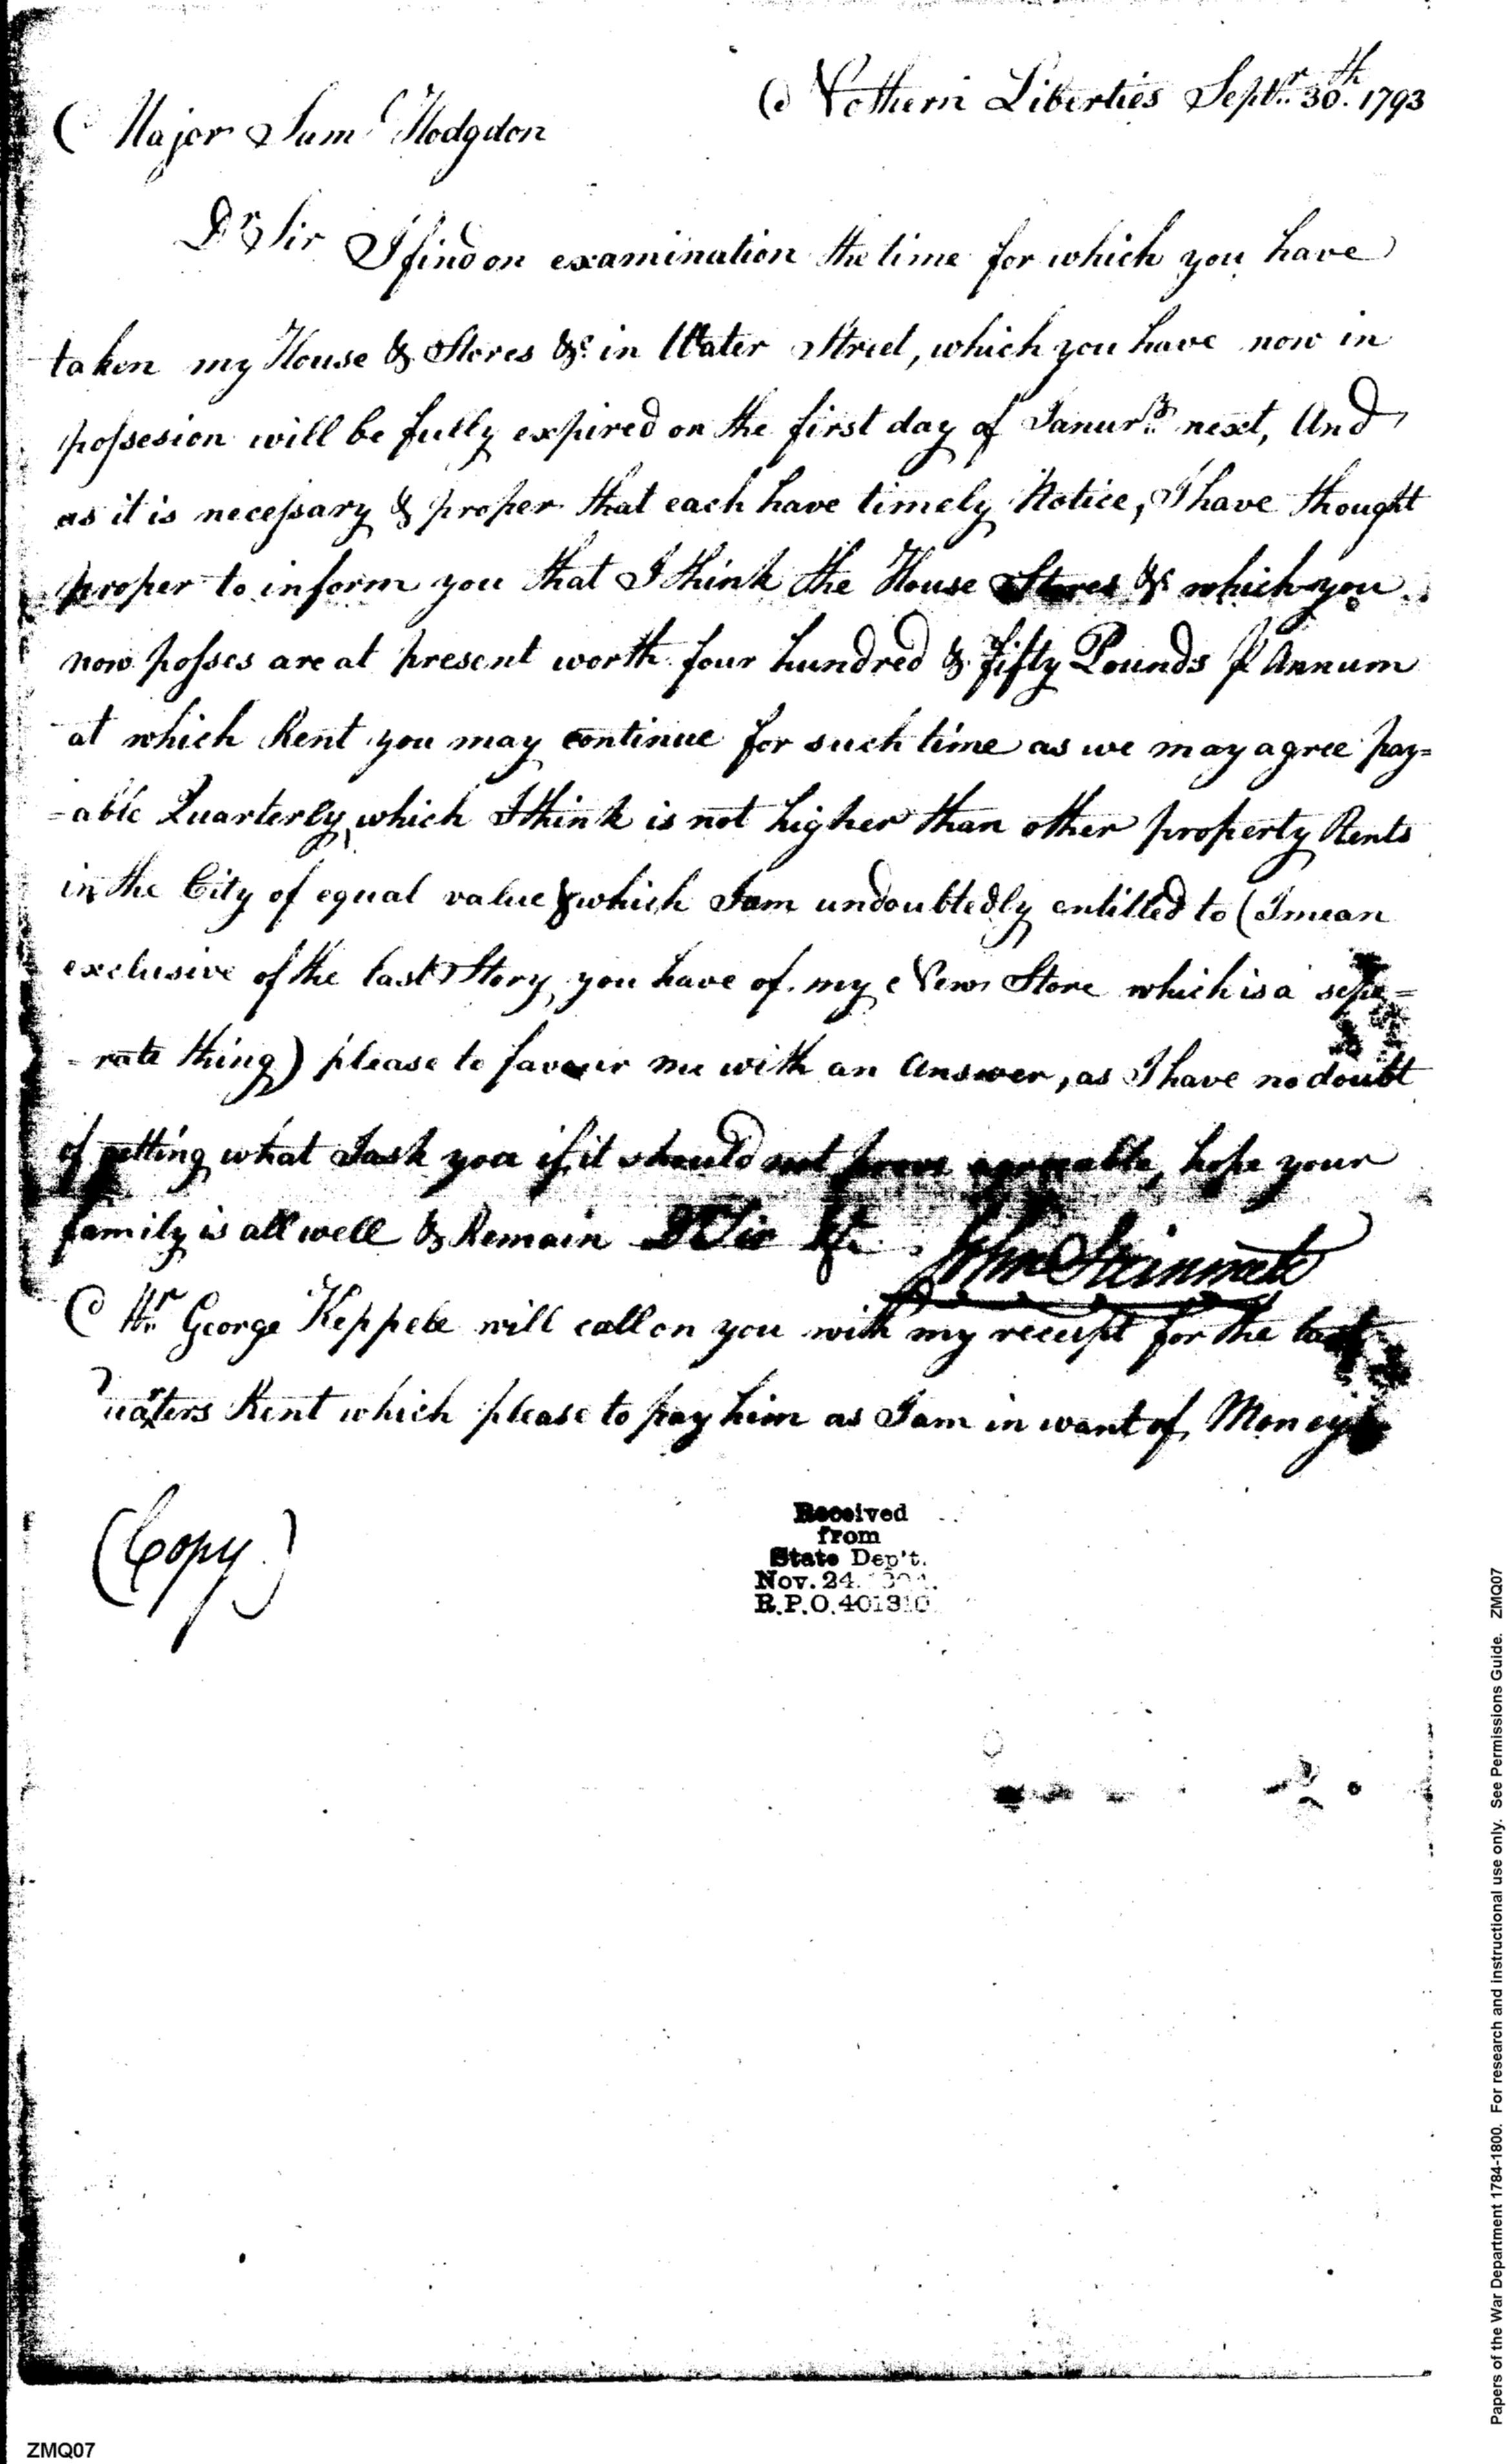 Nothern Liberties Septr. 30th. 1793
Major Saml Hodgdon
Dr Sir I find on examination the time for which you have
taken my House & Stores &c. in Water Street, which you have now in
possesion will be fully expired on the first day of Janury. next, And
as it is necessary & proper that each have timely Notice, I have thought
proper to inform you that I think the House Stores &c which you
now posses are at present worth four hundred & fifty Pounds P Annum
at which Rent you may continue for such time as we may agree pay=
=able Quarterly, which I think is not higher than other property Rents
in the City of equal value & which I am undoubtedly entitled to (I mean
exclusive of the last Story you have of my New Store which is a sepe=
=rate thing) please to favour me with an Answer, as I have no doubt
of getting what I ask you if it should not prove agreeable, hope your
family is all well & Remain Dr Sir &c.
John Steinmetz
Mr George Keppele will call on you with my receipt for the last
Quarters Rent which please to pay him as I am in want of Money
(Copy.)
Received
from
State Dep't.
Nov. 24.
R.P.O. 401310
Papers of the War Department 1784-1800. For research and instructional use only. See Permissions Guide. ZMQ07
ZMQ07